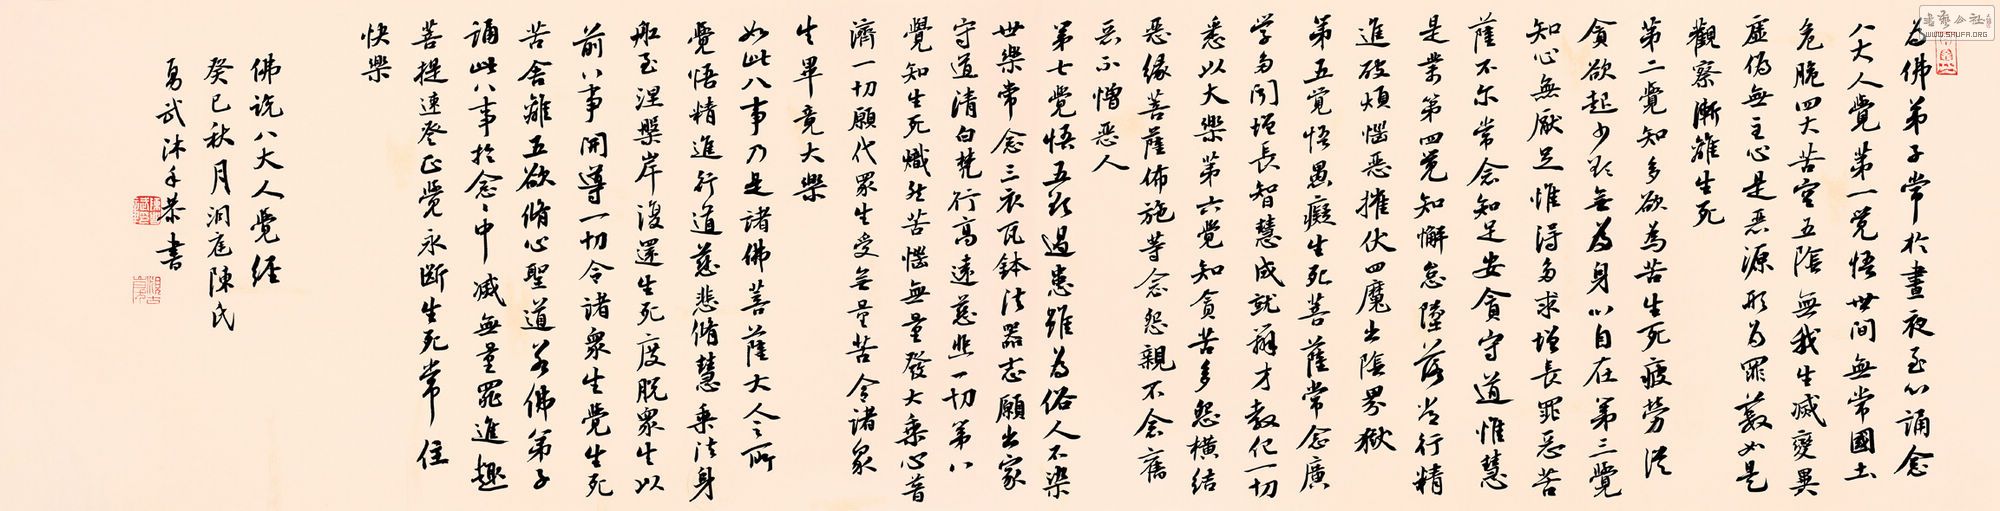 为佛弟子常於晝夜至心誦念
八大人覺第一觉悟世间無常國土
危脆四大苦空五陰無我生滅變異
虛偽無主心是惡源形为罪薮如是
觀察漸離生死
第二覺知多欲為苦生死疲劳从
貪欲起少欲无为身心自在第三覺
知心無厭足惟得多求增長罪惡苦
薩不尔常念知足安貪守道惟慧
是業第四觉知懈怠墜落常行精
進破煩惱惡摧伏四魔出陰界獄
第五覚悟愚癡生死菩薩常念廣
学多闻增長智慧成就辯才教化一切
悉以大樂第六覺知貪苦多怨横結
惡緣菩薩佈施等念怨親不念舊
惡不憎惡人
第七覺悟五欲過患雖為俗人不染
世樂常念三衣瓦鉢法器志願出家
守道清白梵行高遠慈悲一切第八
覺知生死熾然苦惱無量發大乘心普
濟一切願代眾生受无量苦令諸眾
生畢竟大樂
如此八事乃是諸佛菩薩大人之所
覺悟精進行道慈悲脩慧乘法身
船至涅槃岸復還生死度脱眾生以
前八事開導一切令诸眾生覺生死
苦舍離五欲脩心聖道若佛弟子
誦此八事於念念中滅無量罪進趣
菩提速登正覺永断生死常住
快樂
佛说八大人覺经
癸巳秋月洞庭陳氏
勇武沐手恭書
书艺公社
WWW.SHUFA.ORG